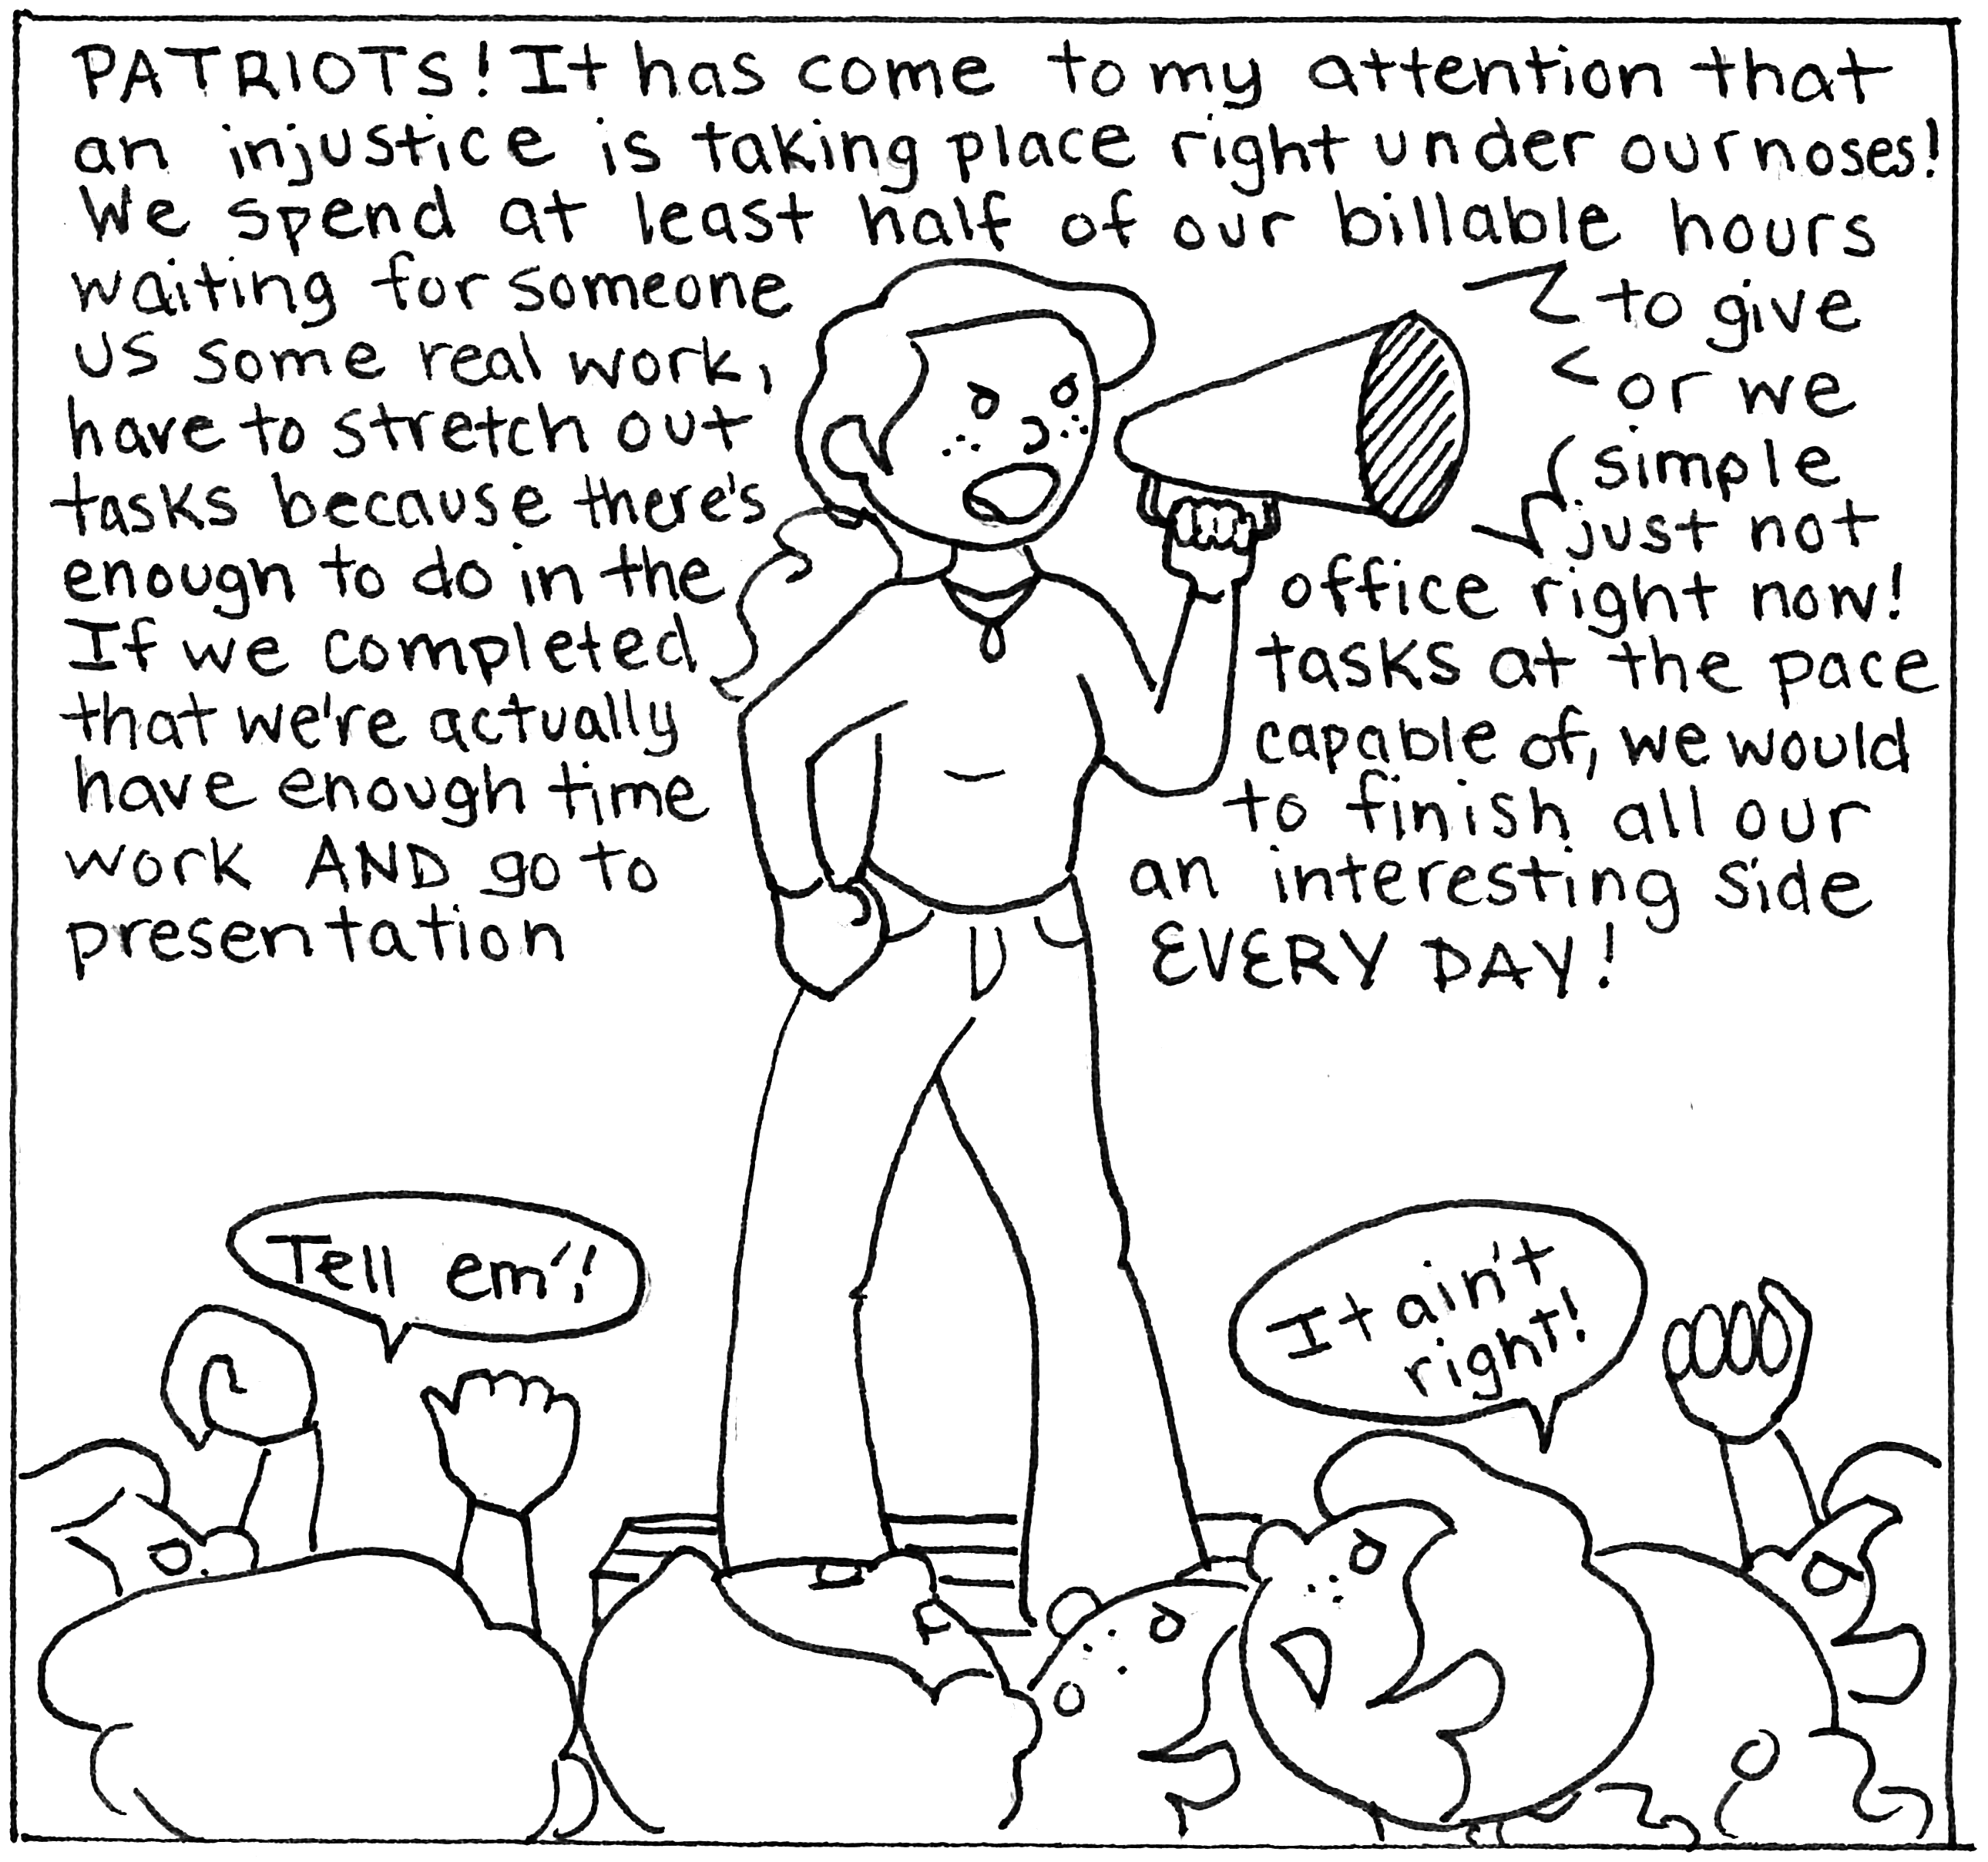 PATRIOTS! It has come to my attention that
an injustice is taking place right under our noses!
We spend at least half of our billable hours
waiting for someone to give
us some real work, or we
have to stretch out simple
tasks because there's just not
enough to do in the office right now!
If we completed tasks at the pace
that we're actually capable of, we would
have enough time to finish all our
work AND go to an interesting side
presentation EVERY DAY!
Tell em'!
It ain't
right!